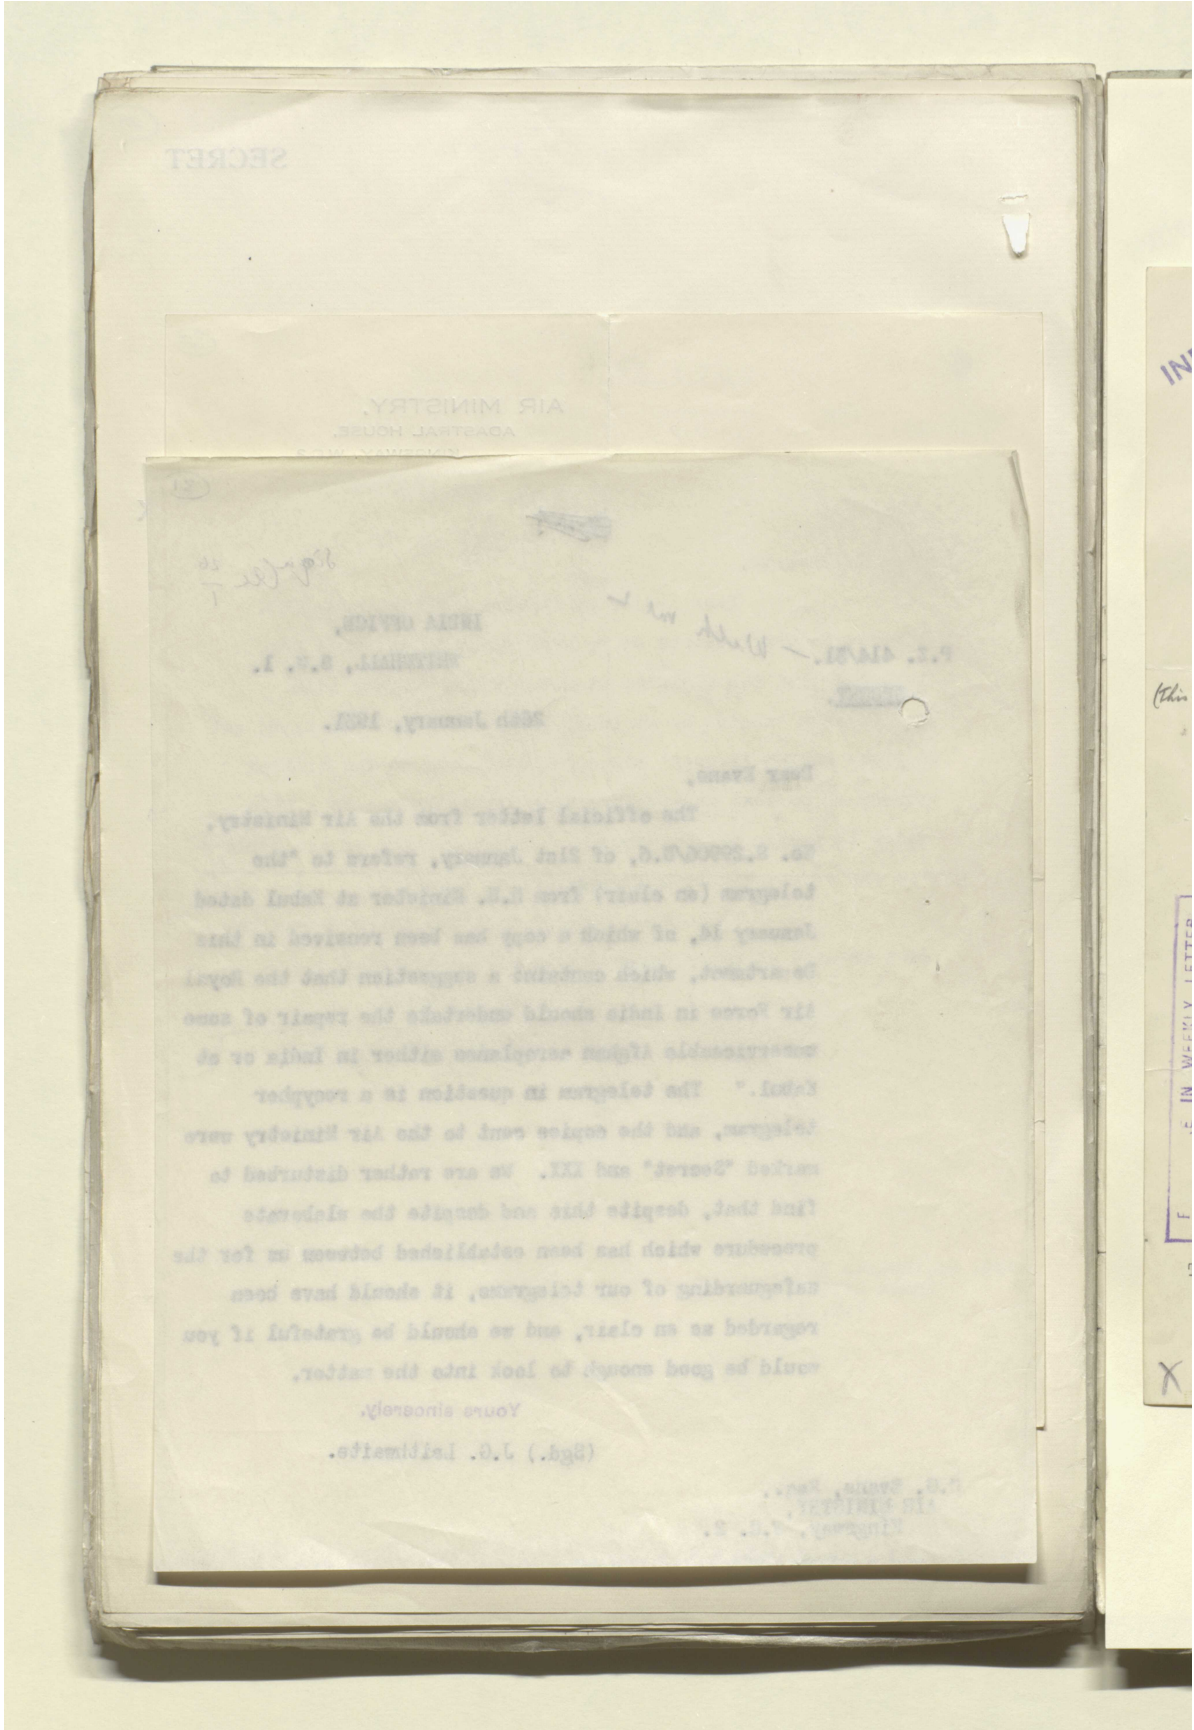 SECRET
AIR MINISTRY.
ADASTRAL HOUSE,
KINGSWAY, W.C.2.
INDIA OFFICE,
WHITEHALL, S.W. 1.
P.Z. 414/31.
SECRET.
26th January, 1931.
Dear Evans,
The official letter from the Air Ministry,
of 21st January, refers to "the
telegram (en clair) from H.M. Minister at Kabul dated
January 14, of which a copy has been received in this
Department, which contains a suggestion that the Royal
Air Force in India should undertake the repair of some
unserviceable Afghan aeroplanes either in India or at
Kabul." The telegram in question is a recypher
telegram, and the copies sent to the Air Ministry were
marked "Secret" and XXX. We are rather disturbed to
find that, despite this and despite the elaborate
procedure which has been established between us for the
safeguarding of our telegrams, it should have been
regarded as en clair, and we should be grateful if you
would be good enough to look into the matter.
Yours sincerely,
(Sgd.) J.G. Laithwaite.
Evans, Esq.,
AIR MINISTRY,
Kingsway, W.C. 2.
(This
E IN WEEKLY LETTER
X